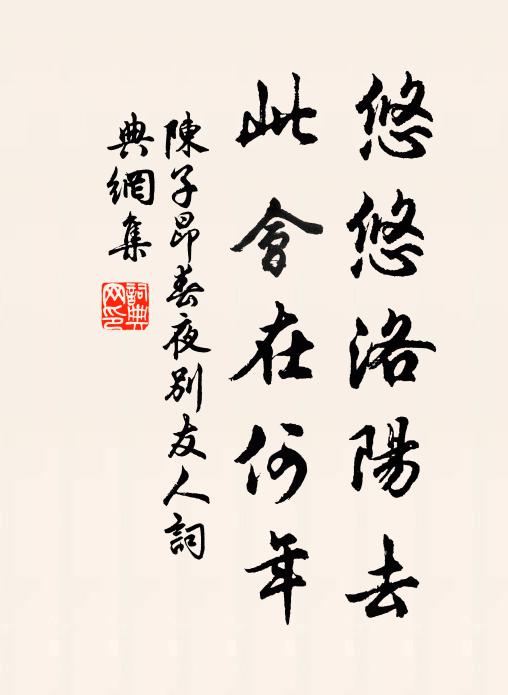 悠悠洛陽去
此會在何年
陳子昂春夜別友人詞
典網集
詞典
网印